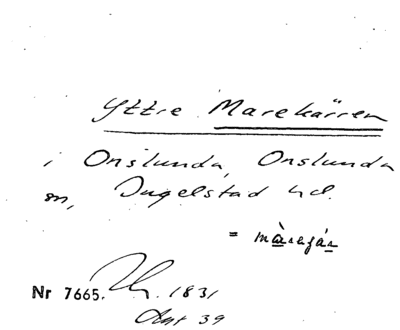 Yttre Marekärren
i Onslunda, Onslunda
sn, Ingelstad hd.
=
Nr 7665. 1831
Akt 39